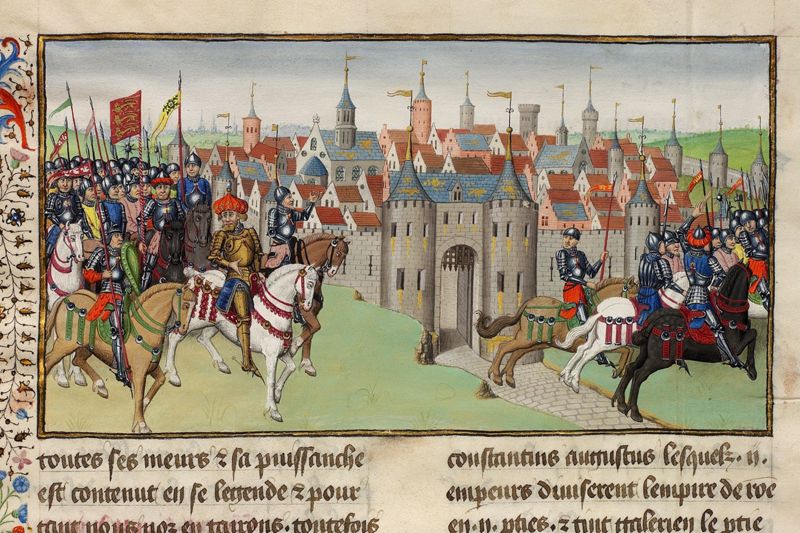 toutes ses meurs ⁊ sa puissanche
est contenut en se legende ⁊ pour
tant nous noz en tairons. toutefois
constantins augustus lesquelz .ii.
empeurs diuiserent lempire de roē
en .ii. pties. ⁊ tint galerien le ptie